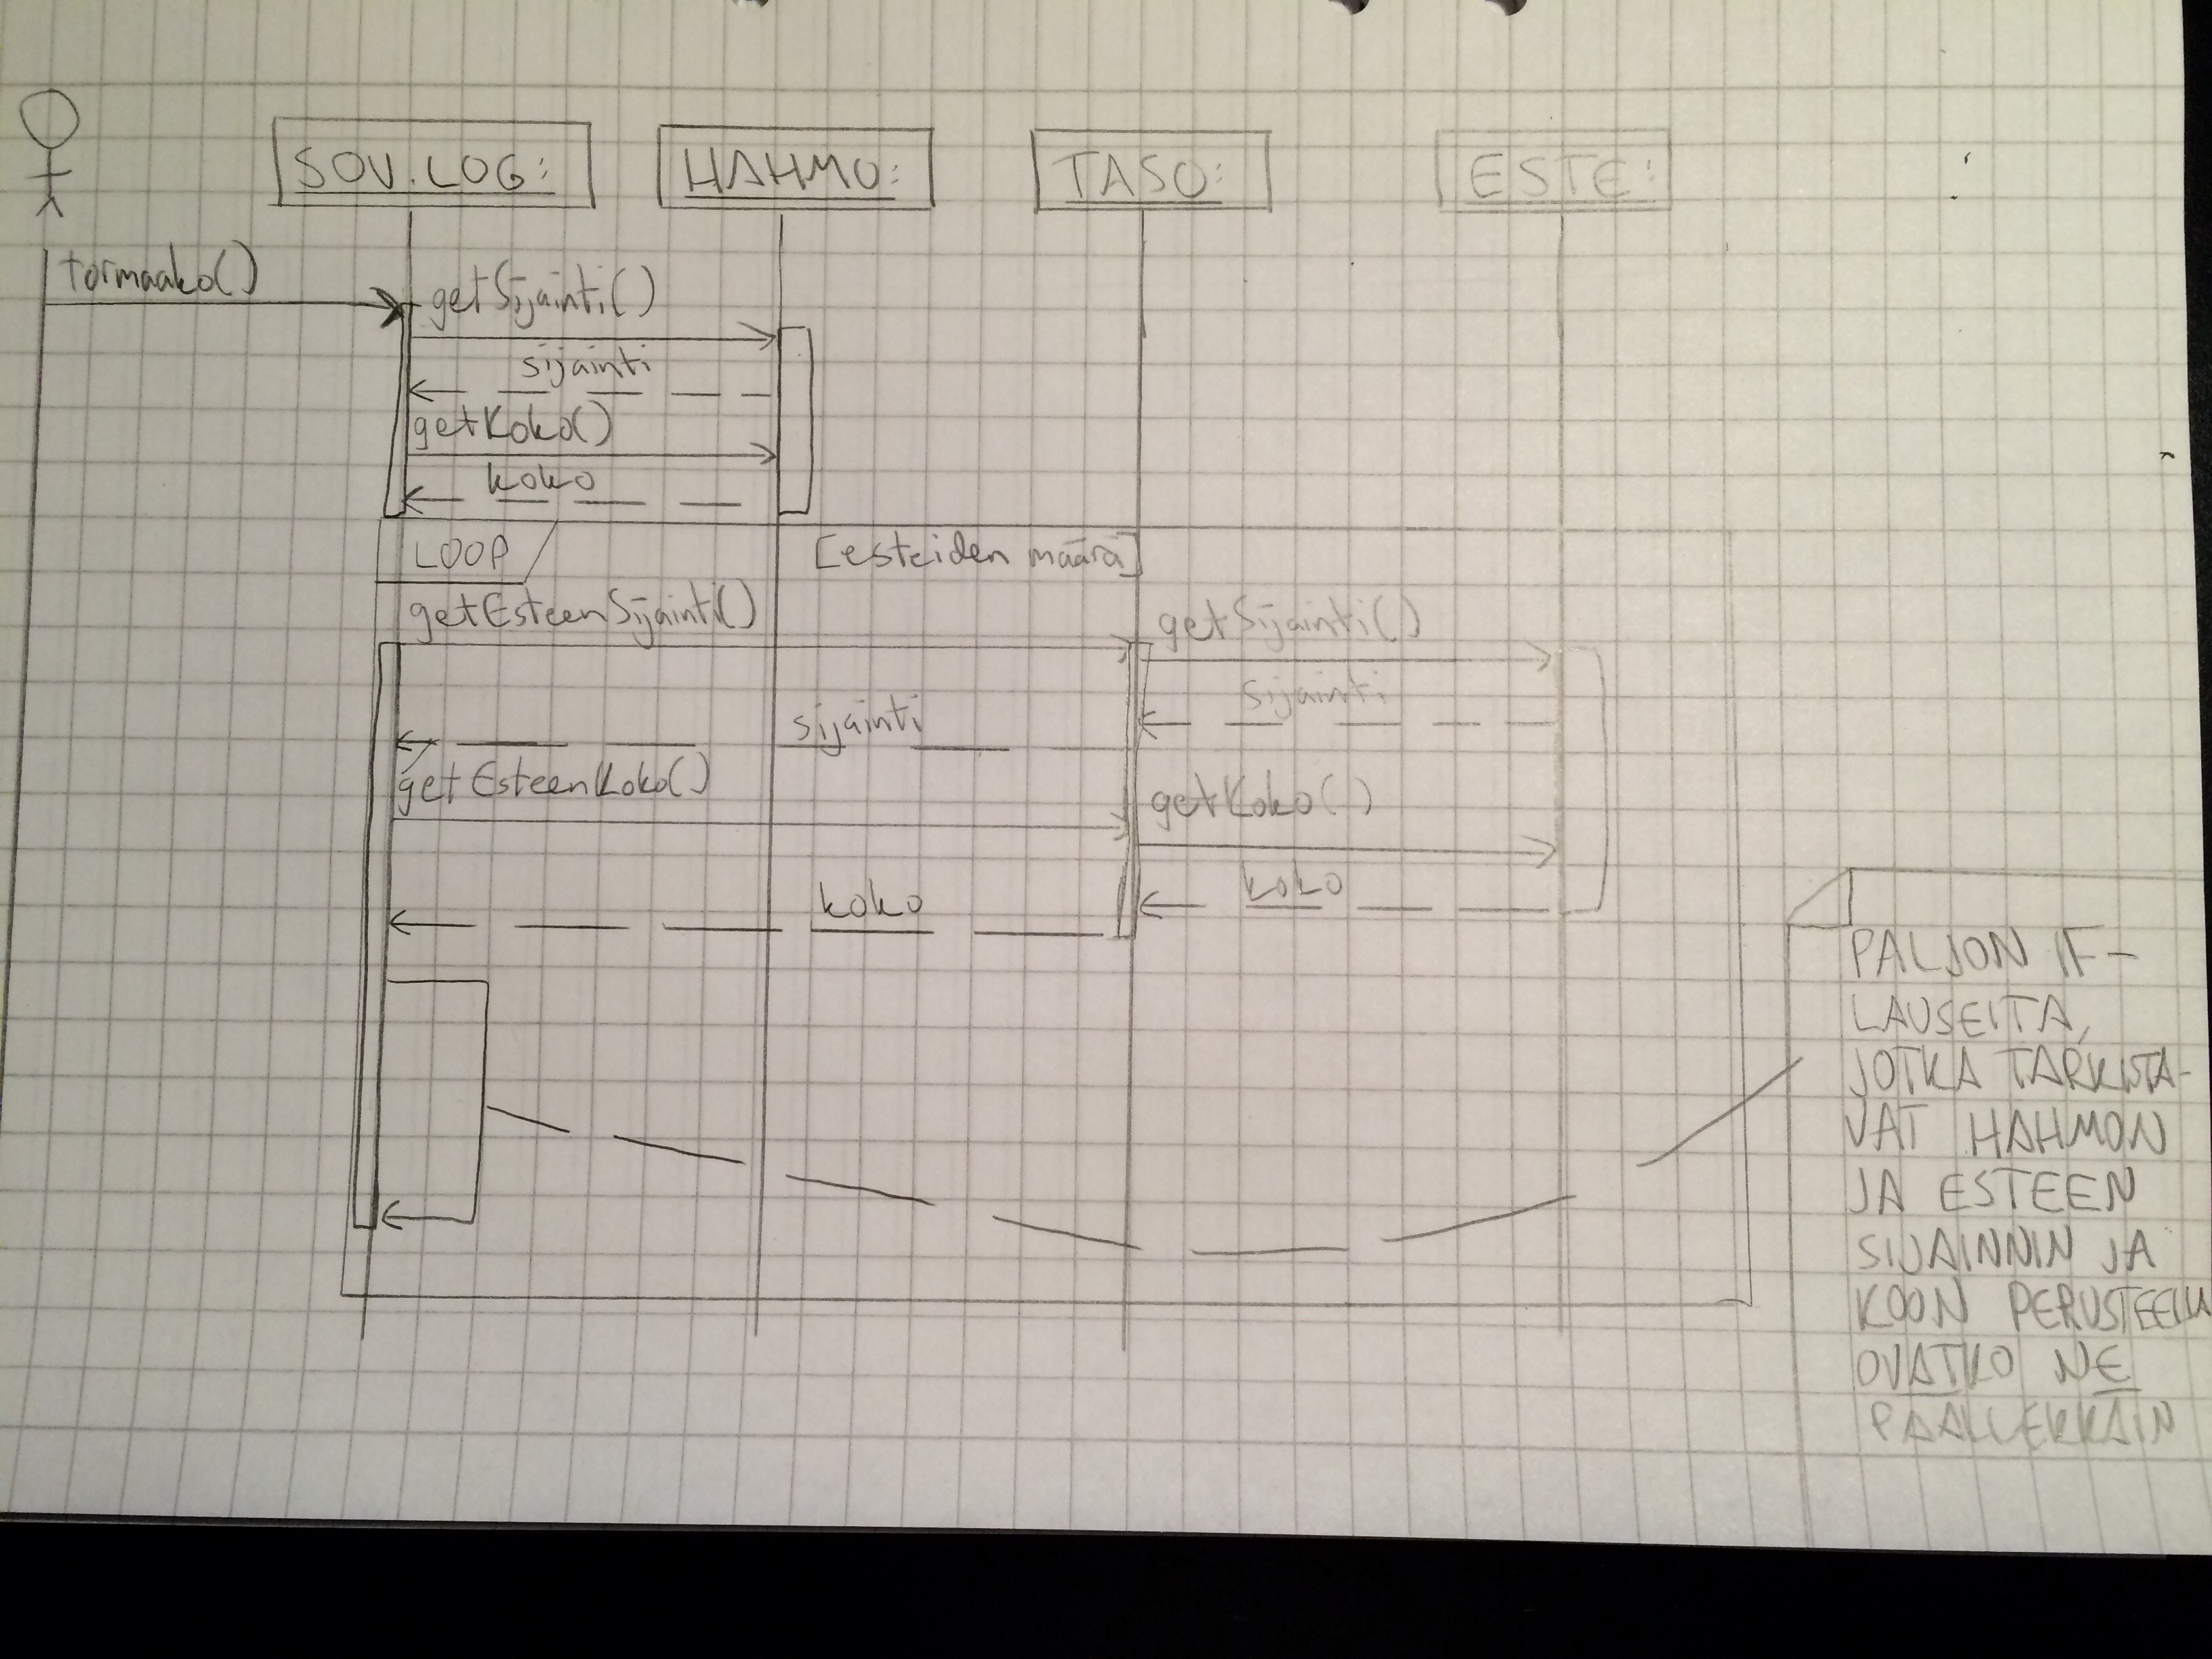 SOV.LOG:
HAHMO:
TASO:
ESTE:
tormaako()
getSijainti()
sijainti
getKoko()
koko
LOOP
[esteiden määrä]
getEsteenSijainti()
getSijainti()
sijainti
sijainti
getEsteenKoko()
getKoko()
koko
koko
PALJON IF-
LAUSEITA,
JOTKA TARKISTA-
VAT HAHMON
JA ESTEEN
SIJAINNIN JA
KOON PERUSTEELLA
OVATKO NE
PÄÄLLEKKÄIN